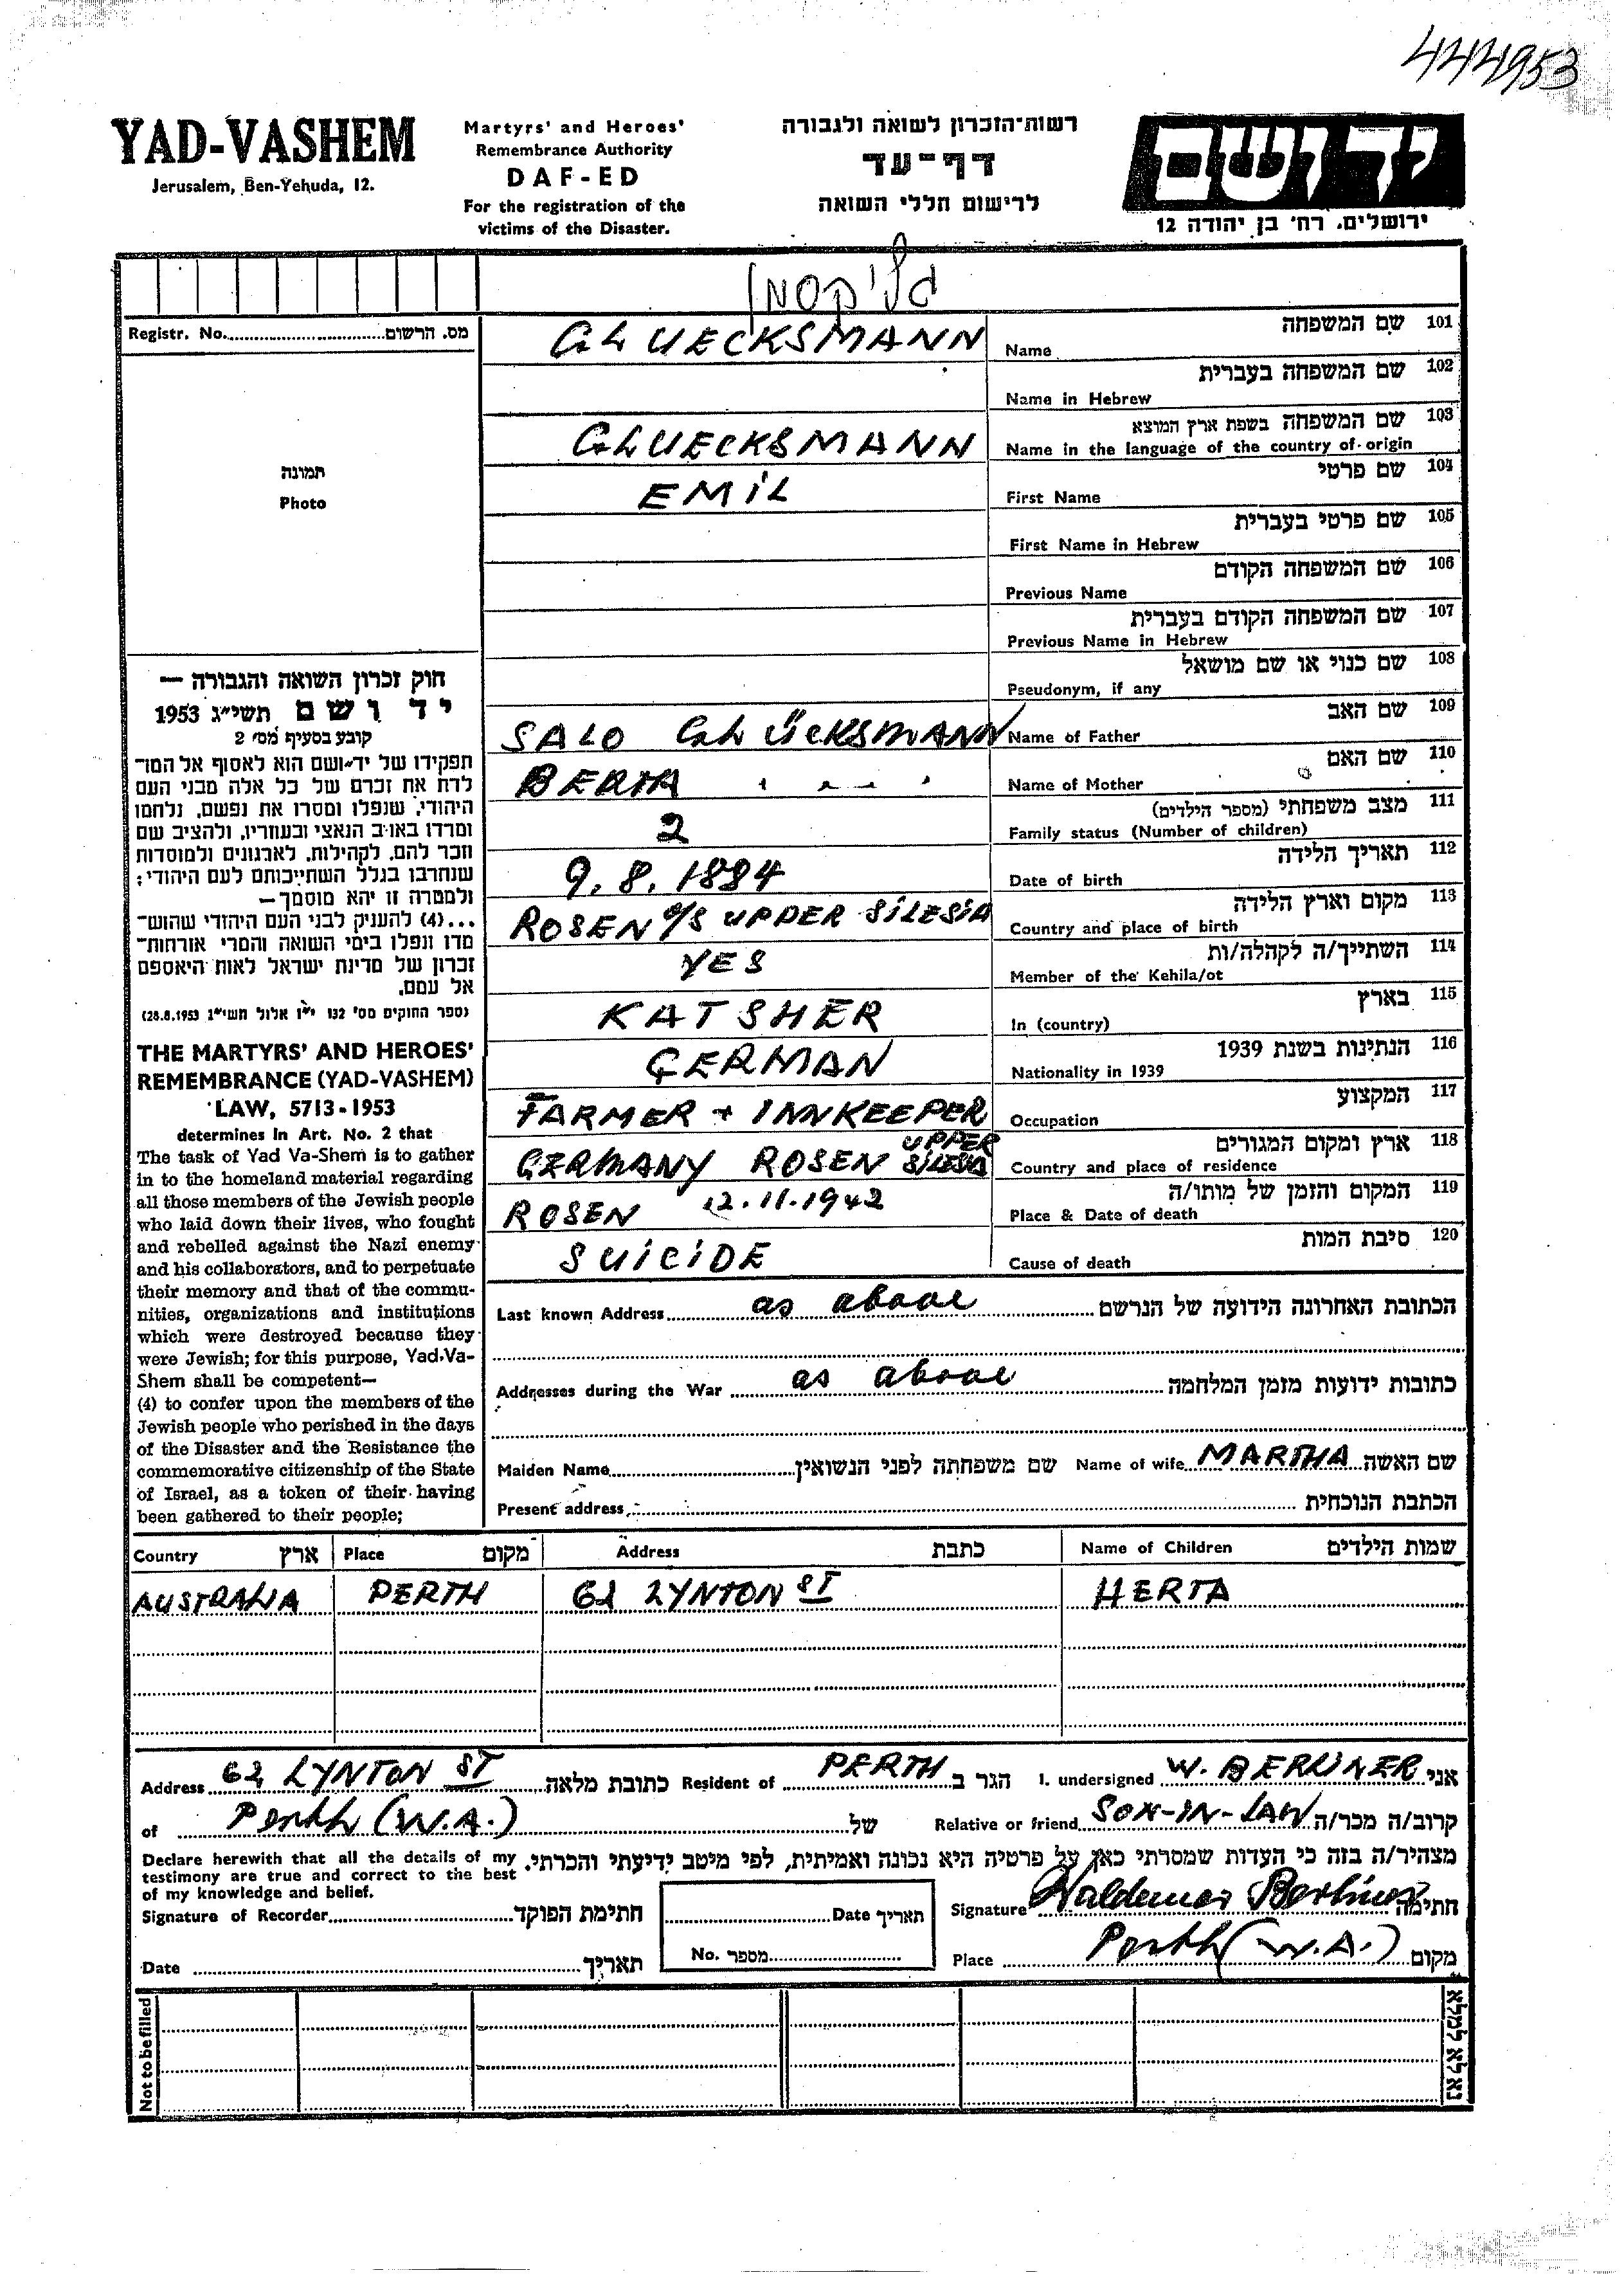 444953
YAD-VASHEM
Jerusalem, Ben-Yehuda, 12.
Martyrs' and Heroes'
Remembrance Authority
DAF-ED
For the registration of the
victims of the Disaster.
רשות-הזכרון לשואה ולגבורה
דף-עד
לרישום חללי השואה
יד ושם
ירושלים. רח' בן יהודה 12
גליקסמן
Registr. No. מס. הרשום
תמונה
Photo
GLUECKSMANN Name שם המשפחה 101
Name in Hebrew שם המשפחה בעברית 102
GLUECKSMANN Name in the language of the country of origin שם המשפחה בשפת ארץ המוצא 103
EMIL First Name שם פרטי 104
First Name in Hebrew שם פרטי בעברית 105
Previous Name שם המשפחה הקודם 106
Previous Name in Hebrew שם המשפחה הקודם בעברית 107
Pseudonym, if any שם כנוי או שם מושאל 108
SALO GLÜCKSMANN Name of Father שם האב 109
BERTA Name of Mother שם האם 110
2 Family status (Number of children) מצב משפחתי (מספר הילדים) 111
9.8.1884 Date of birth תאריך הלידה 112
ROSEN O/S UPPER SILESIA Country and place of birth מקום וארץ הלידה 113
YES Member of the Kehila/ot השתייך/ה לקהלה/ות 114
KATSHER In (country) בארץ 115
GERMAN Nationality in 1939 הנתינות בשנת 1939 116
FARMER + INNKEEPER Occupation המקצוע 117
GERMANY ROSEN UPPER SILESIA Country and place of residence ארץ ומקום המגורים 118
ROSEN 12.11.1942 Place & Date of death המקום והזמן של מותו/ה 119
SUICIDE Cause of death סיבת המות 120
חוק זכרון השואה והגבורה —
יד ושם תשי"ג 1953
קובע בסעיף מס' 2
תפקידו של יד-ושם הוא לאסוף אל המו־
לדת את זכרם של כל אלה מבני העם
היהודי, שנפלו ומסרו את נפשם, נלחמו
ומרדו באויב הנאצי ובעוזריו, ולהציב שם
וזכר להם, לקהילות, לארגונים ולמוסדות
שנחרבו בגלל השתייכותם לעם היהודי;
ולמטרה זו יהא מוסמך —
...(4) להעניק לבני העם היהודי שהוש־
מדו ונפלו בימי השואה והמרי אזרחות־
זכרון של מדינת ישראל לאות היאספם
אל עמם.
(ספר החוקים מס' 132 י"ז אלול תשי"ג 28.8.1953)
THE MARTYRS' AND HEROES'
REMEMBRANCE (YAD-VASHEM)
LAW, 5713-1953
determines in Art. No. 2 that
The task of Yad Va-Shem is to gather
in to the homeland material regarding
all those members of the Jewish people
who laid down their lives, who fought
and rebelled against the Nazi enemy
and his collaborators, and to perpetuate
their memory and that of the commu-
nities, organizations and institutions
which were destroyed because they
were Jewish; for this purpose, Yad-Va-
Shem shall be competent—
(4) to confer upon the members of the
Jewish people who perished in the days
of the Disaster and the Resistance the
commemorative citizenship of the State
of Israel, as a token of their having
been gathered to their people;
Last known Address as above הכתובת האחרונה הידועה של הנרשם
Addresses during the War as above כתובות ידועות מזמן המלחמה
Maiden Name שם משפחתה לפני הנשואין Name of wife MARTHA שם האשה
Present address הכתבת הנוכחית
Country ארץ Place מקום Address כתבת Name of Children שמות הילדים
AUSTRALIA PERTH 62 LYNTON ST HERTA
Address 62 LYNTON ST כתובת מלאה Resident of PERTH הגר ב I. undersigned W. BERLINER אני
of Perth (W.A.) של Relative or friend SON-IN-LAW קרוב/ה מכר/ה
Declare herewith that all the details of my
testimony are true and correct to the best
of my knowledge and belief.
מצהיר/ה בזה כי העדות שמסרתי כאן על פרטיה היא נכונה ואמיתית, לפי מיטב ידיעתי והכרתי.
Signature of Recorder חתימת הפוקד Date תאריך Signature Waldemar Berliner חתימה
Date תאריך No. מספר Place Perth (W.A.) מקום
Not to be filled
נא לא למלא